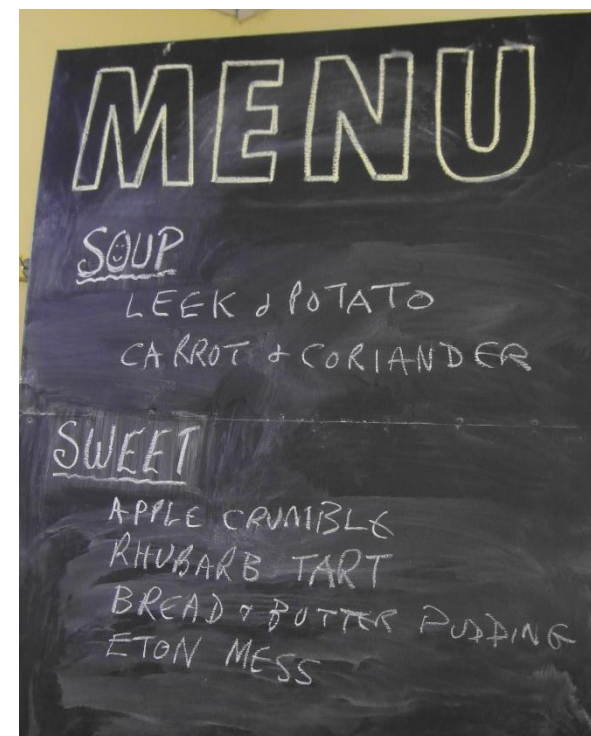 MENU
SOUP
LEEK & POTATO
CARROT & CORIANDER
SWEET
APPLE CRUMBLE
RHUBARB TART
BREAD & BUTTER PUDDING
ETON MESS